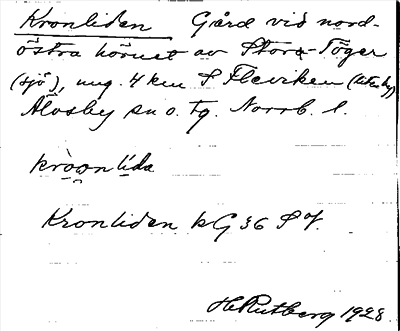 Kronliden Gård vid nord-
östra hörnet av Stora-Töger
(sjö), ung. 4 km S Fleviken
Älvsby sn o. tg. Norrb. l.
Kronliden kG 36 S of.
H Rutberg 1928